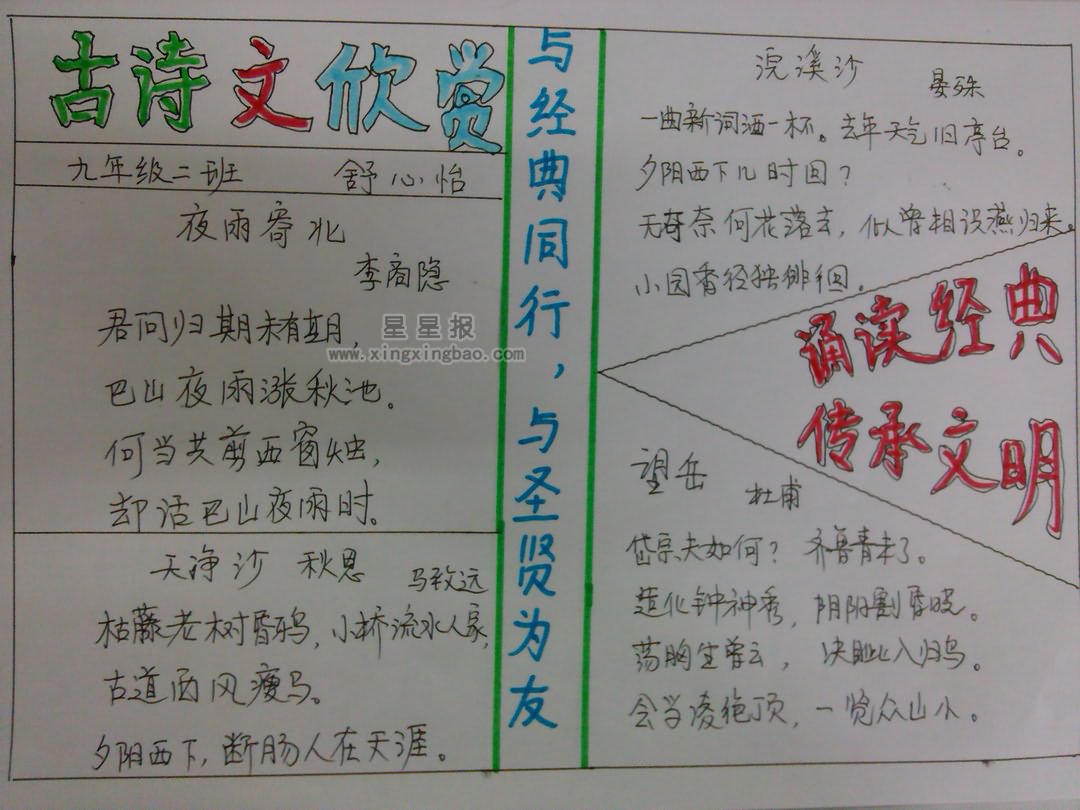 古诗文欣赏
九年级二班 舒心怡
夜雨寄北
李商隐
君问归期未有期,
巴山夜雨涨秋池。
何当共剪西窗烛,
却话巴山夜雨时。
天净沙 秋思 马致远
枯藤老树昏鸦,小桥流水人家,
古道西风瘦马。
夕阳西下,断肠人在天涯。
与经典同行,与圣贤为友
浣溪沙 晏殊
一曲新词酒一杯。去年天气旧亭台。
夕阳西下几时回?
无可奈何花落去,似曾相识燕归来。
小园香径独徘徊。
诵读经典
传承文明
望岳 杜甫
岱宗夫如何? 齐鲁青未了。
造化钟神秀,阴阳割昏晓。
荡胸生曾云,决眦入归鸟。
会当凌绝顶,一览众山小。
星星报
www.xingxingbao.com